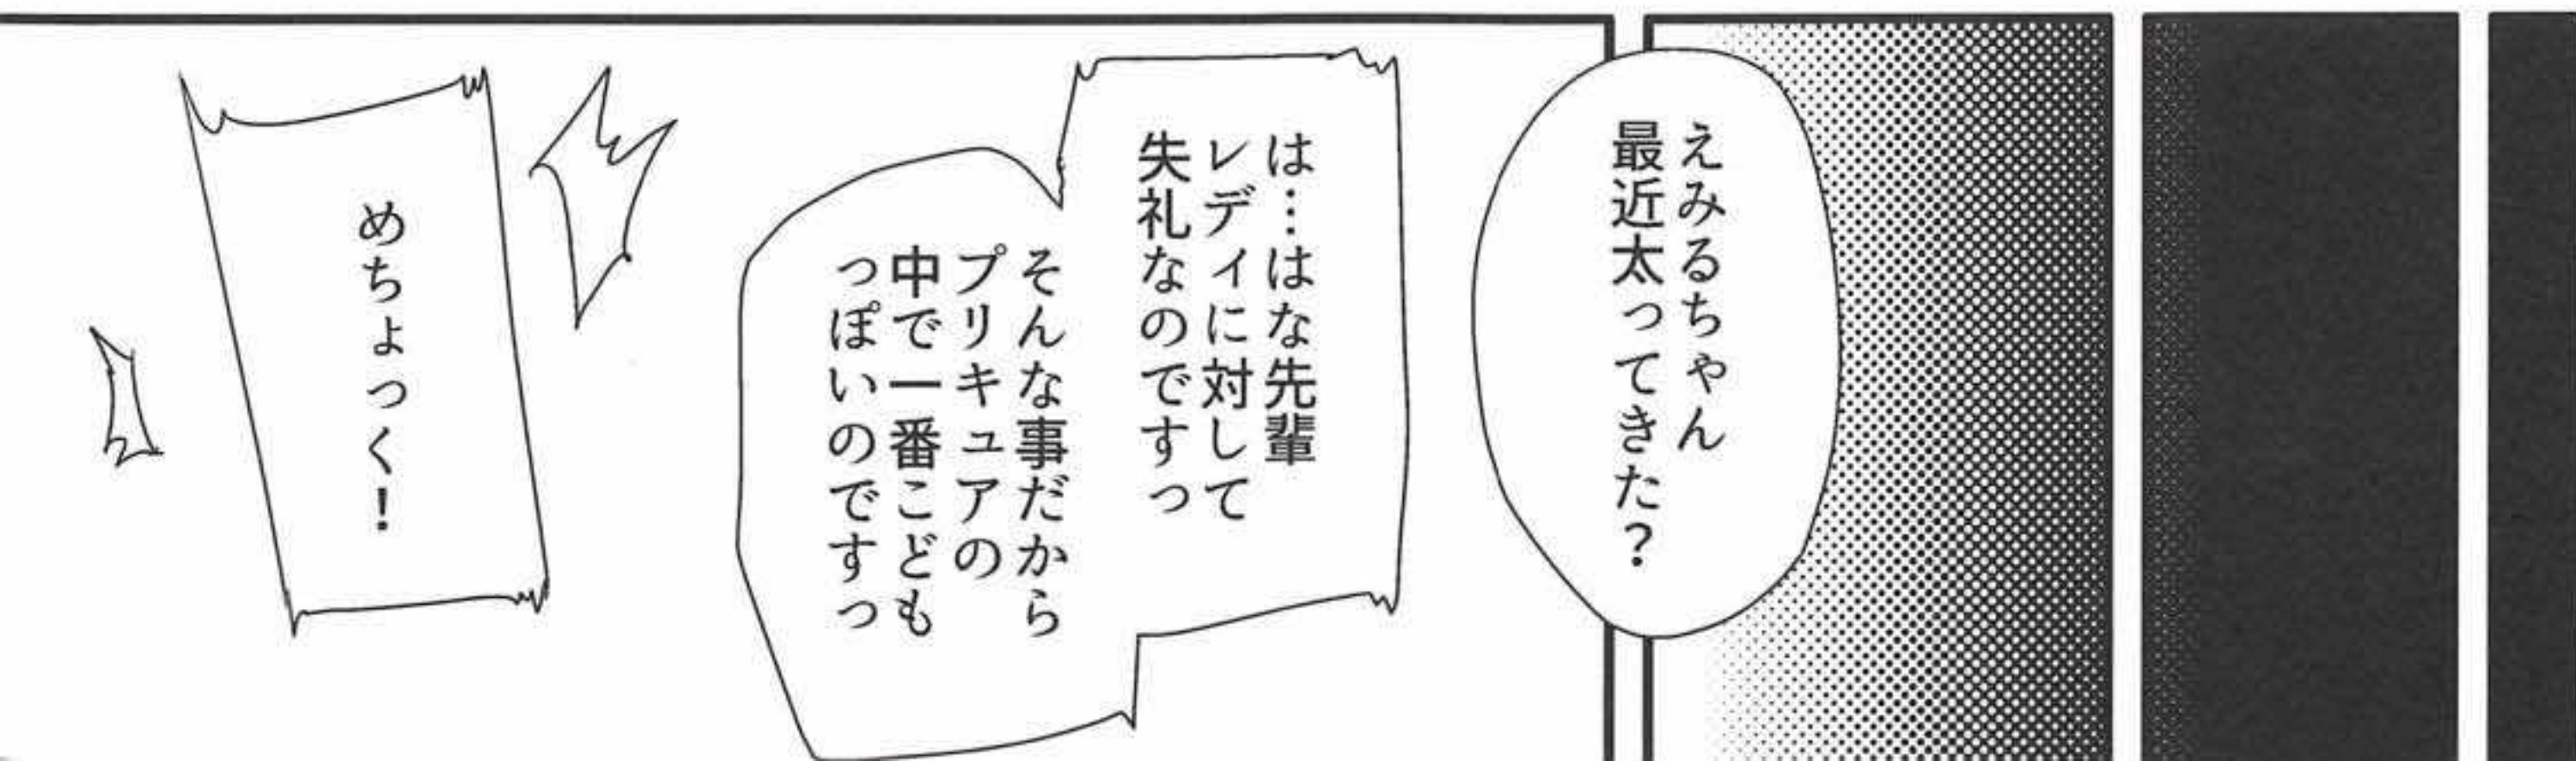 えみるちゃん
最近太ってきた？
は…はな先輩
レディに対して
失礼なのですっ
そんな事だから
プリキュアの
中で一番こども
っぽいのですっ
めちょっく！